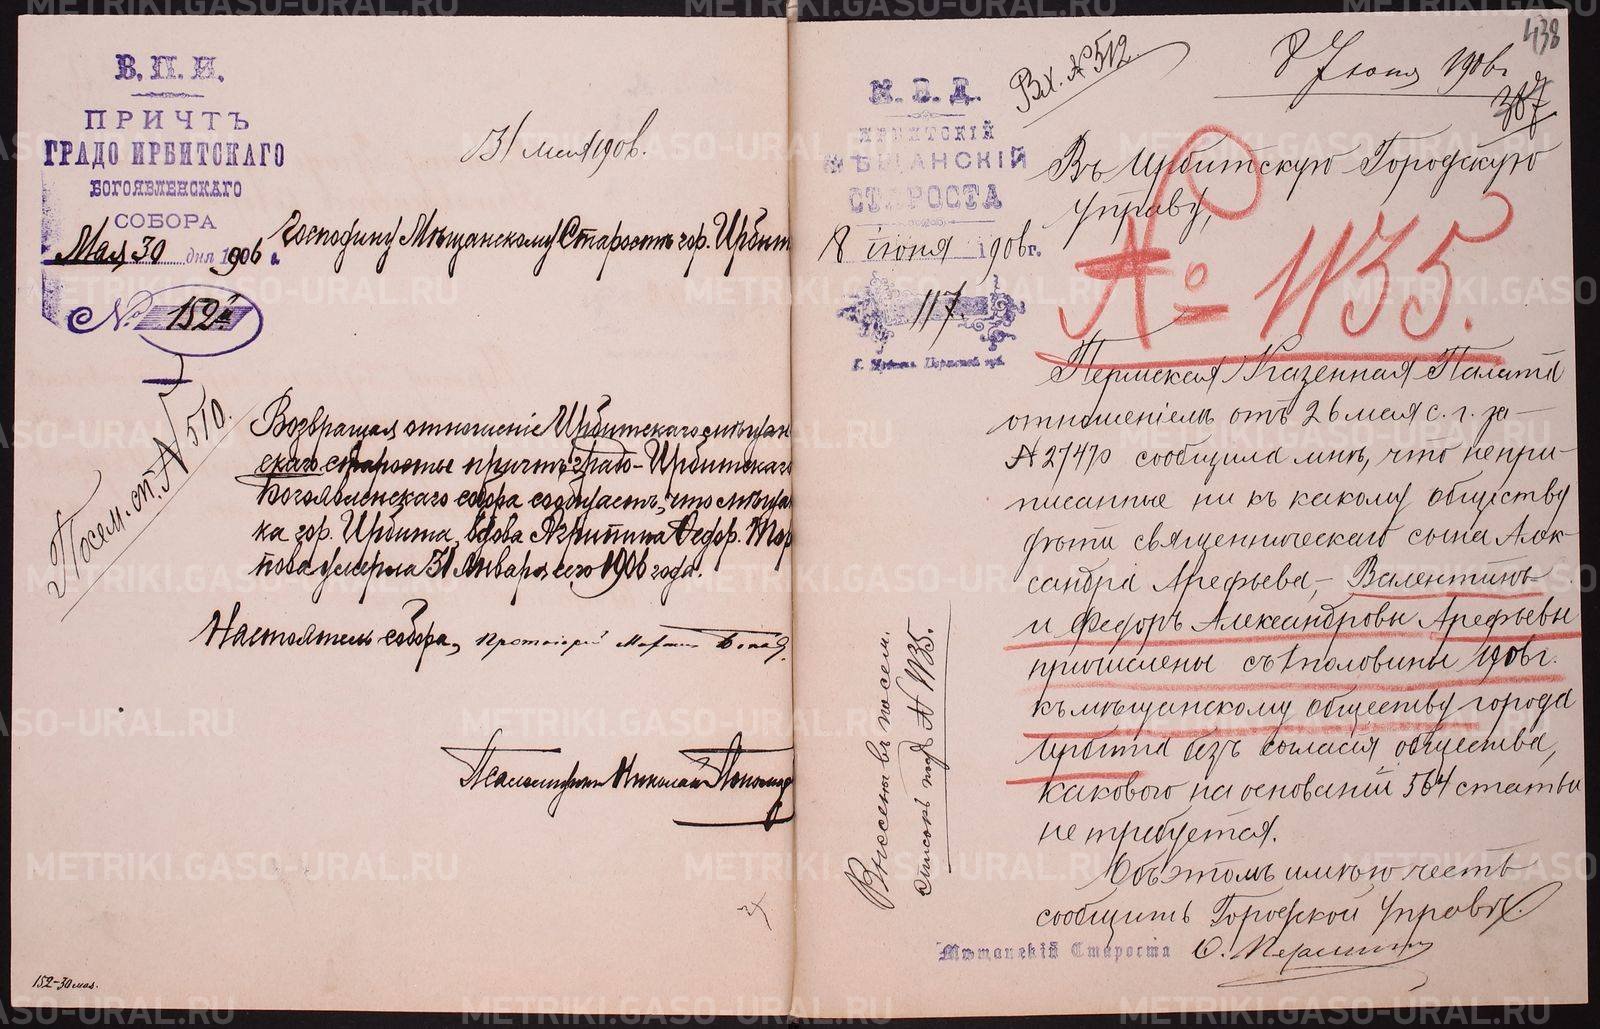 В. П. И.
ПРИЧТЪ
ГРАДО ИРБИТСКАГО
БОГОЯВЛЕНСКАГО
СОБОРА
Мая 30 дня 1906 г.
№ 152
31 мая 1906.
Господину Мѣщанскому Старостѣ гор. Ирбит
Посем. сп. № 510.
Возвращая отношеніе Ирбитскаго мѣщан-
скаго старосты причтъ градо-Ирбитскаго
Богоявленскаго собора сообщаетъ, что мѣщан
ка гор. Ирбита, вдова Агрипина Ѳедор.
пова умерла 31 Января сего 1906 года.
Настоятель собора, протоіерей
Псаломщикъ Николай Пономар
152-30 мая.
М. В. Д.
ИРБИТСКІЙ
МѢЩАНСКІЙ
СТАРОСТА
8 іюня 1906 г.
117.
Г. Ирбитъ Пермской губ.
Вх. № 512
8 Іюня 1906 г.
438
387
Въ Ирбитскую Городскую
Управу,
№ 1135.
Пермская Казенная Палата
отношеніемъ отъ 26 мая с. г. за
№ 27470 сообщила мнѣ, что непри-
писанные ни къ какому обществу
дѣти священническаго сына Алек-
сандра Арефьева, Валентинъ
и Федоръ Александровы Арефьевы
причислены съ 1 половины 1906 г.
къ мѣщанскому обществу города
Ирбита безъ согласія общества,
какового на основаніи 564 статьи
не требуется.
Объ этомъ имѣю честь
сообщить Городской Управѣ.
Мѣщанскій Староста
Внесены въ посем.
списокъ подъ № 1135.
METRIKI.GASO-URAL.RU